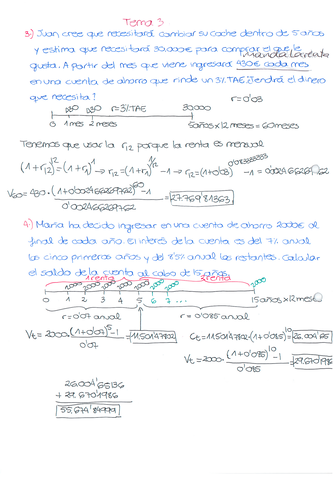 Tema 3
3) Juan cree que necesitará cambiar su coche dentro de 5 años
y estima que necesitará 30.000€ para comprar el que le
gusta. A partir del mes que viene ingresará 430€ cada mes
en una cuenta de ahorro que rinde un 3% TAE ¿Tendrá el dinero
que necesita?
r=0'03
430 430 r=3% TAE 30000
0 1 mes 2 meses 5 años x 12 meses = 60 meses
Tenemos que usar la r12 porque la renta es mensual
(1+r12)^12 = (1+r1)^1 → r12 = (1+r1)^1/12 - 1 → r12 = (1+0'03)^0'08333333 - 1 = 0'002466269762
V60 = 430 · (1+0'002466269762)^60 - 1 / 0'002466269762 = 27.769'81363
4) María ha decido ingresar en una cuenta de ahorro 2000€ al
final de cada año. El interés de la cuenta es del 7% anual
los cinco primeros años y del 8'5% anual los restantes. Calcular
el saldo de la cuenta al cabo de 15 años.
1 renta
2000 2000 2000 2000 2000 2000 2000 2000
0 1 2 3 4 5 6 7 ... 15 años x 12 mes
r=0'07 anual r=0'085 anual
Vt = 2000 · (1+0'07)^5 - 1 / 0'07 = 11.501'47802
Ct = 11.501'47802 · (1+0'085)^10 = 26.004'65
Vt = 2000 · (1+0'085)^10 - 1 / 0'085 = 29.670'1986
26.004'65136
+ 29.670'1986
55.674'84979